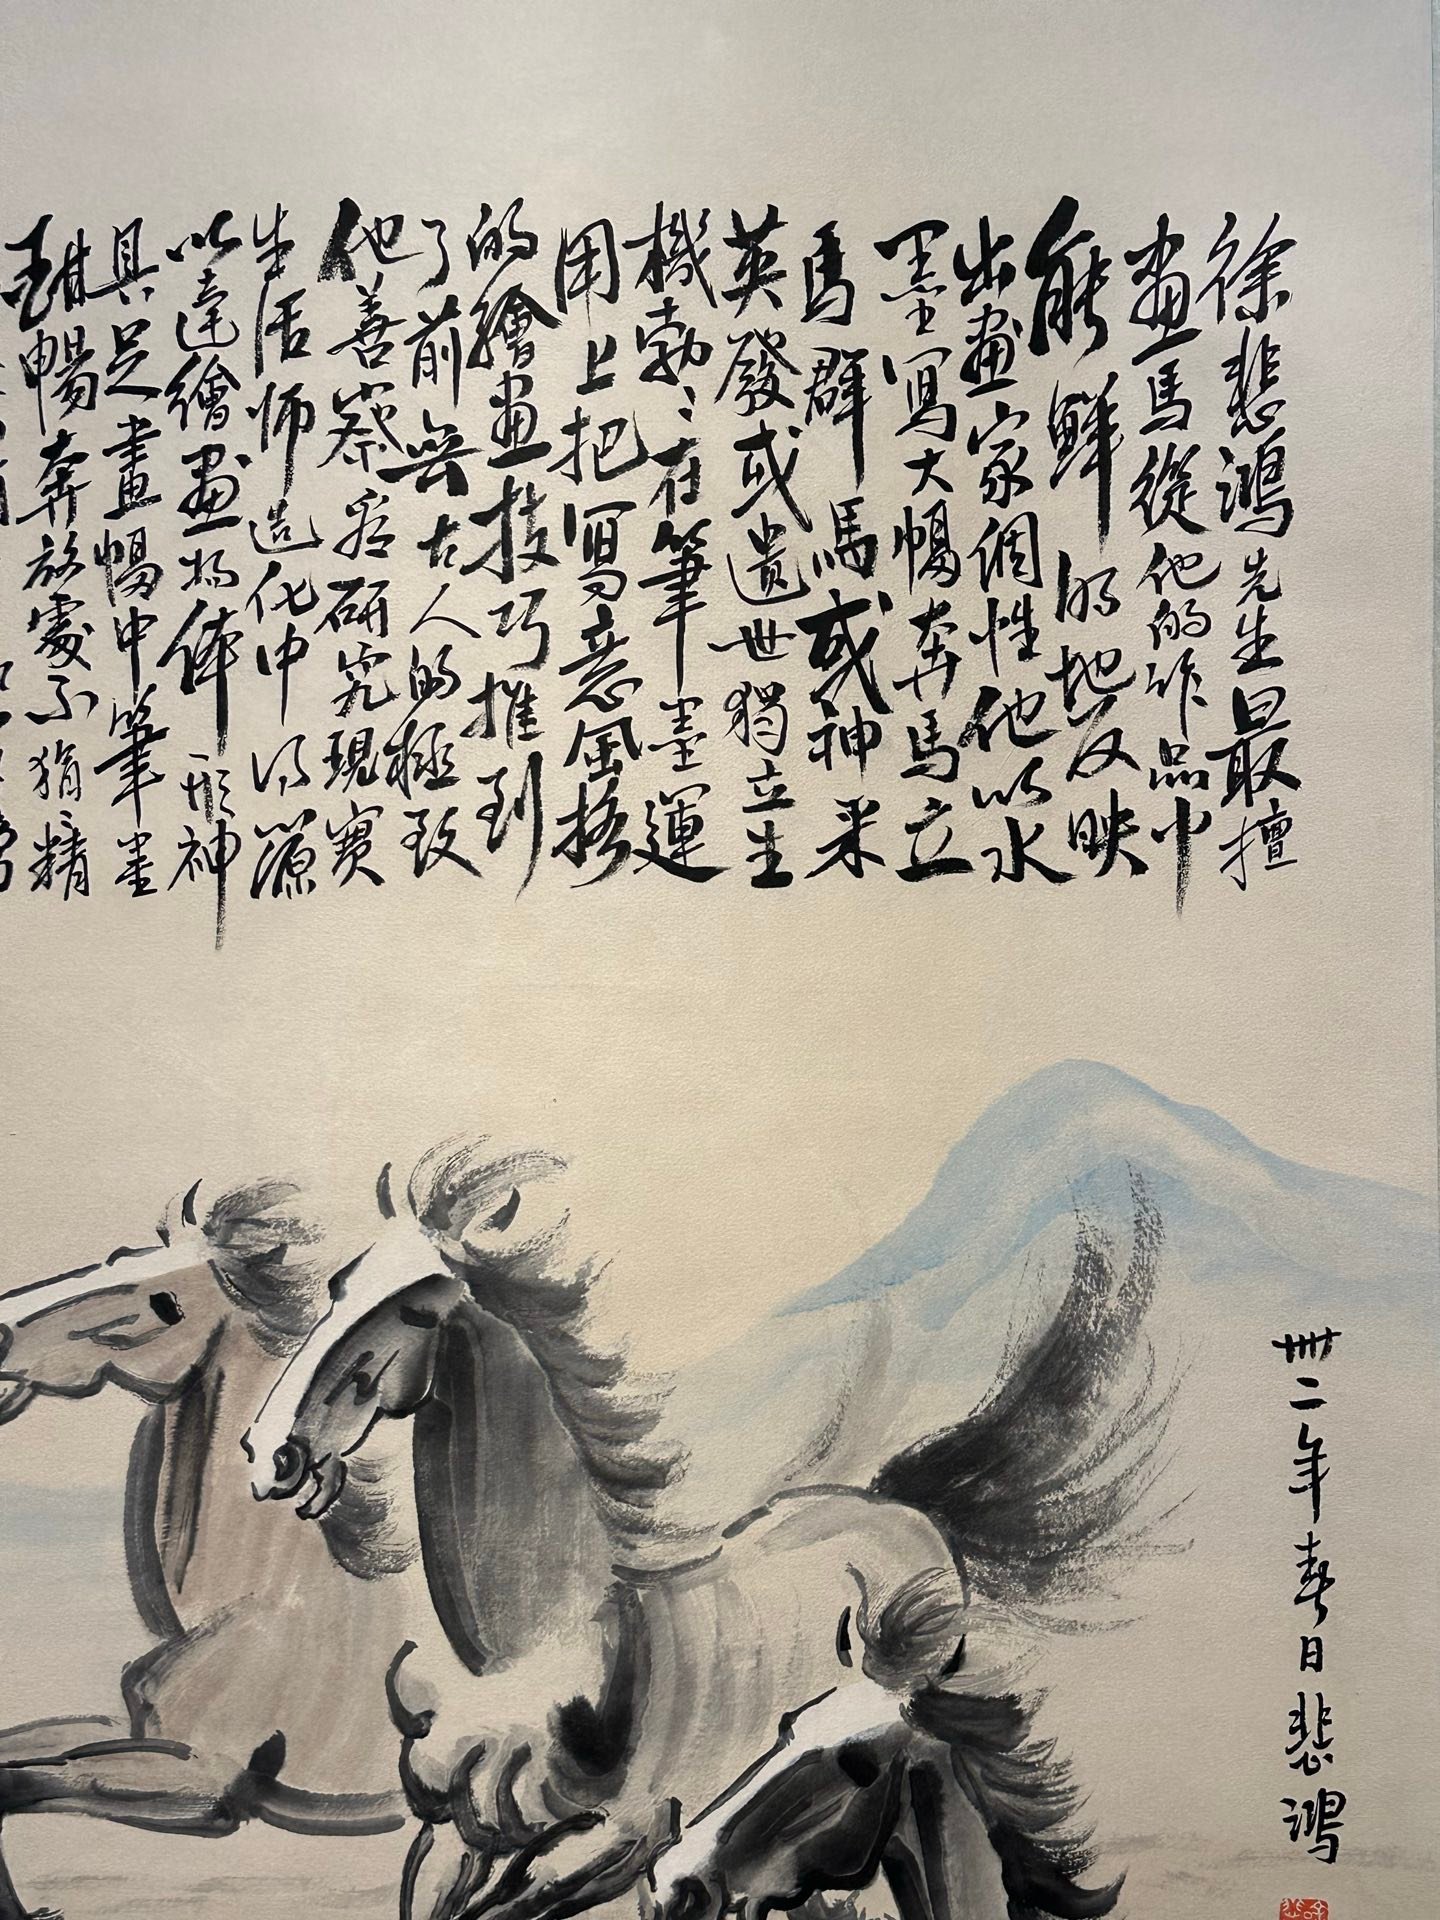 徐悲鴻先生最擅
畫馬從他的作品中
能鮮明地反映
出畫家個性他以水
墨寫大幅奔馬立
馬群馬或神采
英發或遺世獨立生
機勃〻在筆墨運
用上把寫意風格
的繪畫技巧推到
了前無古人的極致
他善察形研究現實
生活师造化中得源
以達繪畫物体形神
具足畫幅中筆墨
酣暢奔放處不狷精
卌二年春日悲鴻